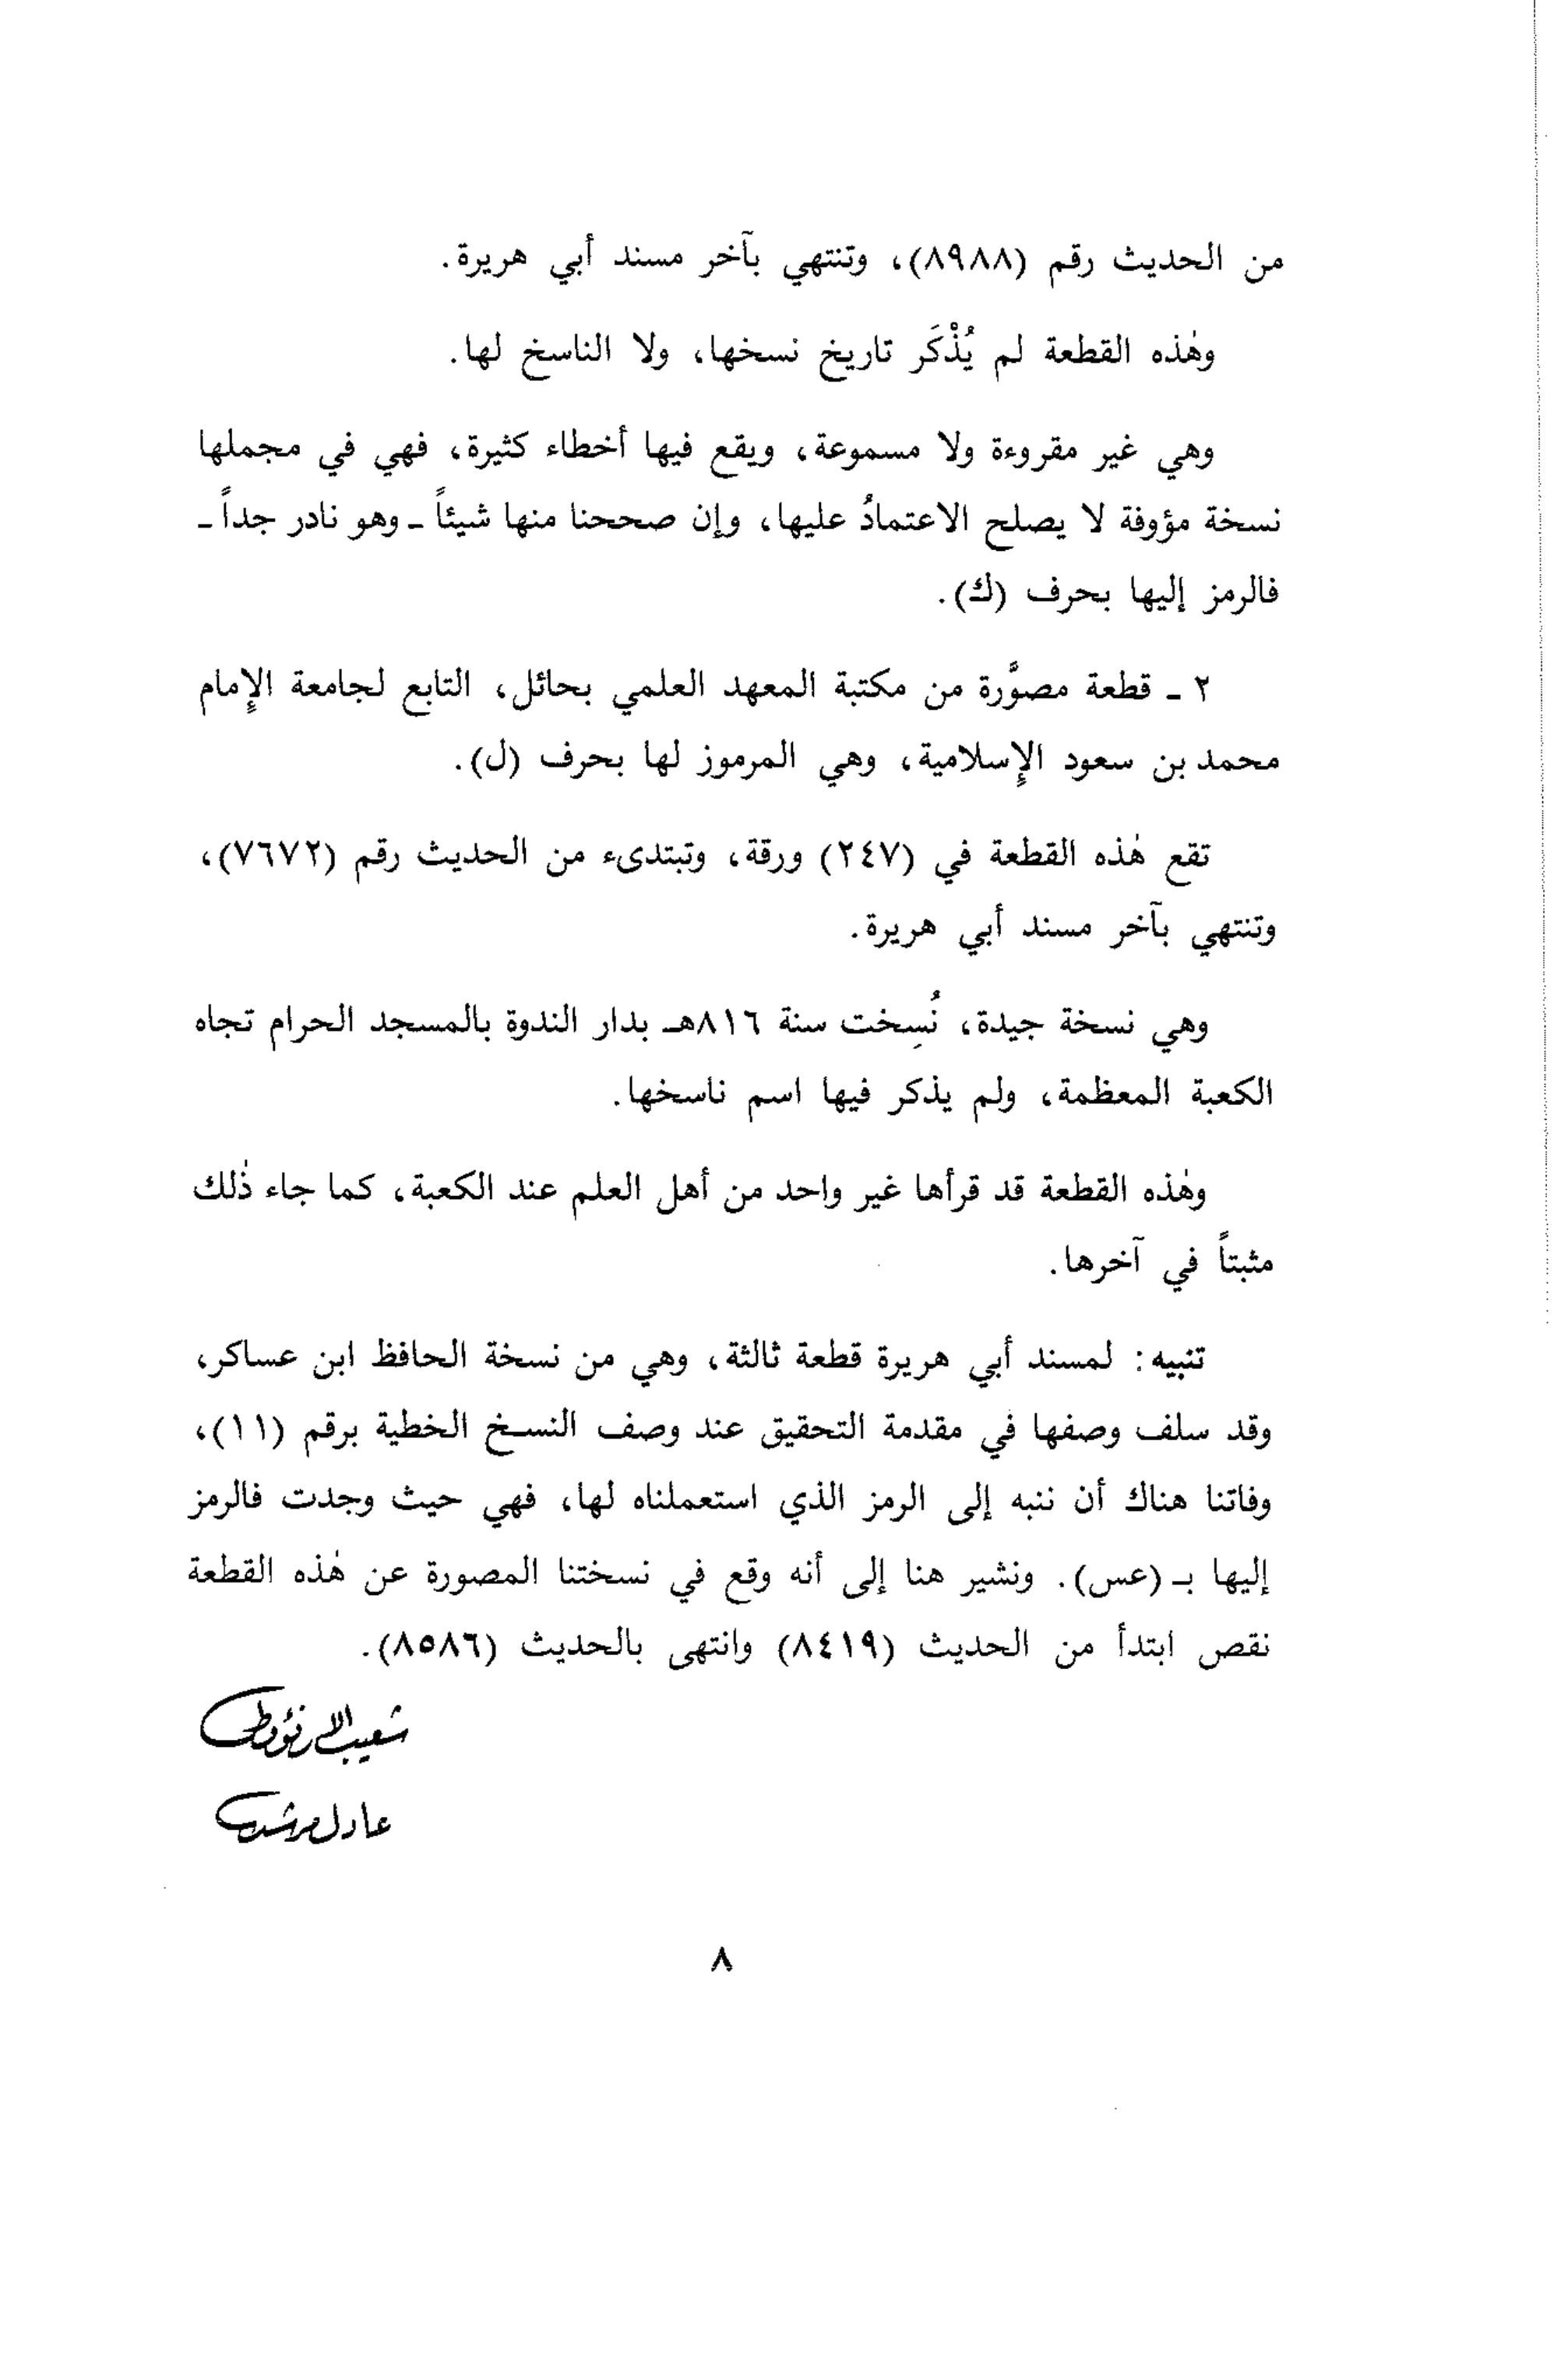 من الحديث رقم (٨٩٨٨)، وتنتهي بآخر مسند أبي هريرة.
وهٰذه القطعة لم يُذْكَر تاريخ نسخها، ولا الناسخ لها.
وهي غير مقروءة ولا مسموعة، ويقع فيها أخطاء كثيرة، فهي في مجملها
نسخة مؤوفة لا يصلح الاعتمادُ عليها، وإن صححنا منها شيئاً ـ وهو نادر جداً ـ
فالرمز إليها بحرف (ك).
٢ ـ قطعة مصوَّرة من مكتبة المعهد العلمي بحائل، التابع لجامعة الإمام
محمد بن سعود الإسلامية، وهي المرموز لها بحرف (ل).
تقع هٰذه القطعة في (٢٤٧) ورقة، وتبتدىء من الحديث رقم (٧٦٧٢)،
وتنتهي بآخر مسند أبي هريرة.
وهي نسخة جيدة، نُسِخت سنة ٨١٦هـ بدار الندوة بالمسجد الحرام تجاه
الكعبة المعظمة، ولم يذكر فيها اسم ناسخها.
وهٰذه القطعة قد قرأها غير واحد من أهل العلم عند الكعبة، كما جاء ذٰلك
مثبتاً في آخرها.
تنبيه: لمسند أبي هريرة قطعة ثالثة، وهي من نسخة الحافظ ابن عساكر،
وقد سلف وصفها في مقدمة التحقيق عند وصف النسخ الخطية برقم (١١)،
وفاتنا هناك أن ننبه إلى الرمز الذي استعملناه لها، فهي حيث وجدت فالرمز
إليها بـ (عس). ونشير هنا إلى أنه وقع في نسختنا المصورة عن هٰذه القطعة
نقص ابتدأ من الحديث (٨٤١٩) وانتهى بالحديث (٨٥٨٦).
شعيب الارنؤوط
عادل مرشد
٨